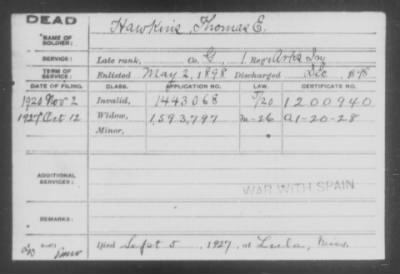 DEAD
NAME OF SOLDIER: Hawkins, Thomas E.
SERVICE: Late rank, Co. G, 1 Reg't Ark Inf
TERM OF SERVICE: Enlisted May 2, 1898 Discharged 1898
DATE OF FILING. CLASS. APPLICATION NO. LAW. CERTIFICATE NO.
1920 Nov 2 Invalid, 1443068 1200940
1927 Oct 12 Widow, 1,593,797 m-26 a1-20-28
Minor,
ADDITIONAL SERVICES:
WAR WITH SPAIN
REMARKS:
Died Sept 5, 1927, at Lula, Miss.